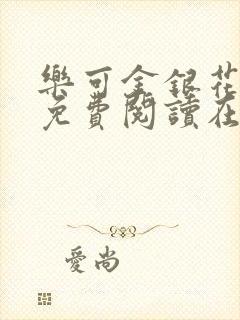 樂可金銀花
免費閱讀在
愛尚